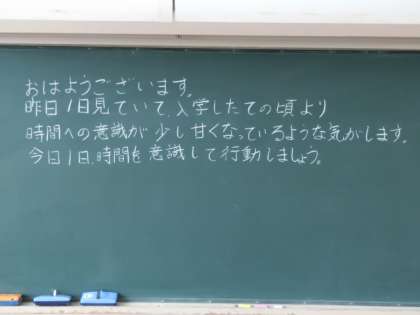 おはようございます。
昨日1日見ていて、入学したての頃より
時間への意識が少し甘くなっているような気がします。
今日1日、時間を意識して行動しましょう。